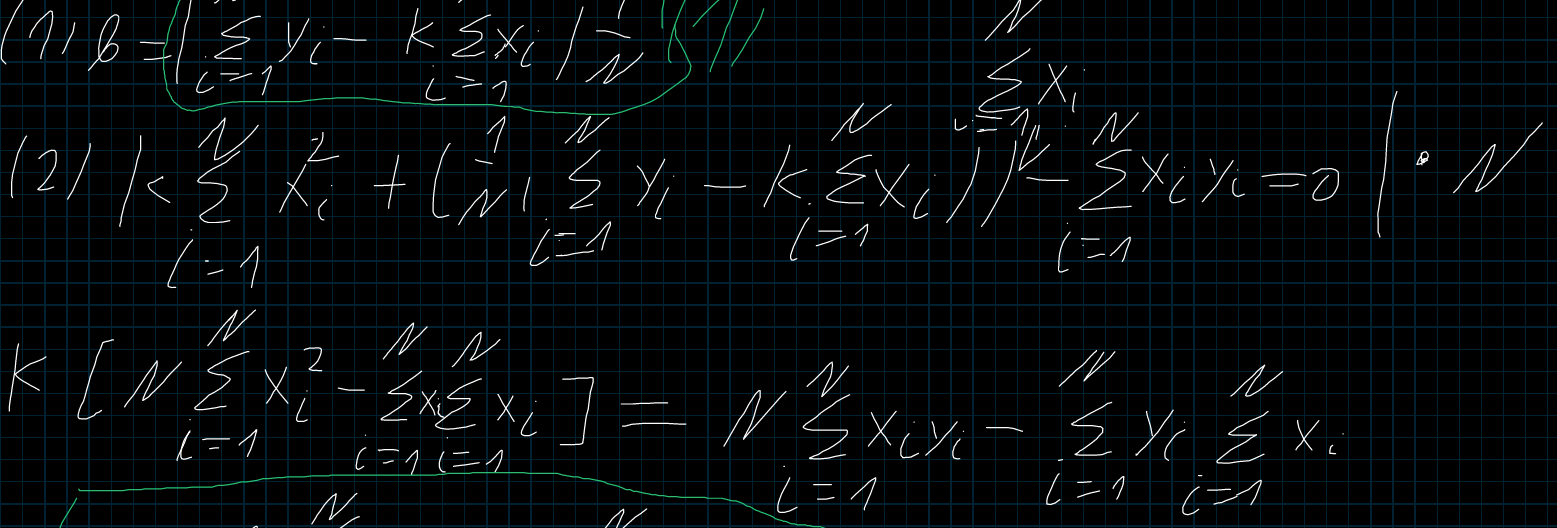 (1) b = (∑_{i=1} y_i − k ∑_{i=1} x_i) 1/N
(2) k ∑_{i=1}^{N} x_i^2 + (1/N (∑_{i=1}^{N} y_i − k ∑_{i=1}^{N} x_i)) ∑_{i=1}^{N} x_i − ∑_{i=1}^{N} x_i y_i = 0 | · N
k [N ∑_{i=1}^{N} x_i^2 − ∑_{i=1}^{N} x_i ∑_{i=1}^{N} x_i] = N ∑_{i=1}^{N} x_i y_i − ∑_{i=1}^{N} y_i ∑_{i=1}^{N} x_i
N N